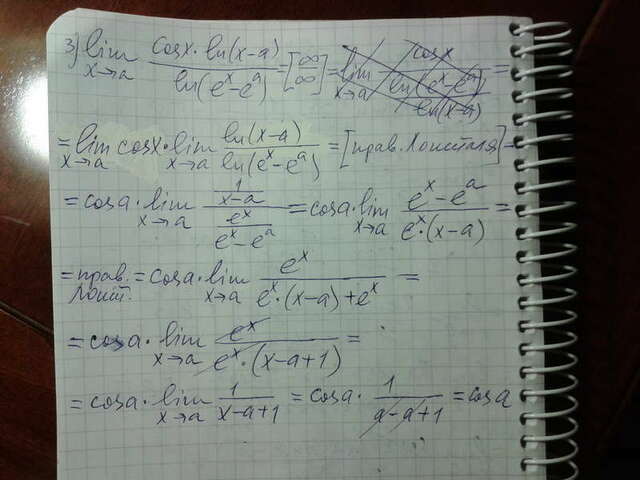 3) lim x→a (cosx·ln(x-a))/(ln(eˣ-eᵃ)) = [∞/∞] = lim x→a cosx/(ln(eˣ-eᵃ)/ln(x-a)) =
= lim x→a cosx · lim x→a ln(x-a)/ln(eˣ-eᵃ) = [прав. Лопиталя] =
= cosa · lim x→a (1/(x-a))/(eˣ/(eˣ-eᵃ)) = cosa · lim x→a (eˣ-eᵃ)/(eˣ·(x-a)) =
= прав. Лопит. = cosa · lim x→a eˣ/(eˣ·(x-a)+eˣ) =
= cosa · lim x→a eˣ/(eˣ·(x-a+1)) =
= cosa · lim x→a 1/(x-a+1) = cosa · 1/(a-a+1) = cosa